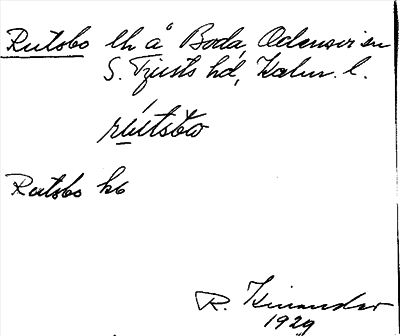 Rutsbo lh å Boda, Odensvi sn
S. Tjusts hd, Kalm. l.
rútsbω
Rutsbo kb
R. Kinander
1929